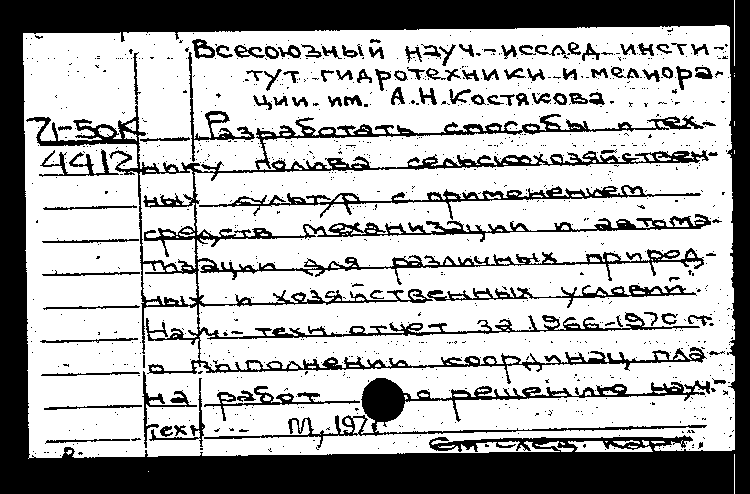 Всесоюзный науч.-исслед. инсти-
тут гидротехники и мелиора-
ции им. А.Н.Костякова.
71-50К Разработать способы и тех-
4412 нику полива сельскохозяйствен-
ных культур с применением
средств механизации и автома-
тизации для различных природ-
ных и хозяйственных условий.
Науч.-техн. отчет за 1966-1970 гг.
о выполнении координац. пла-
на работ по решению науч.-
техн... М, 197
см. след. карт.